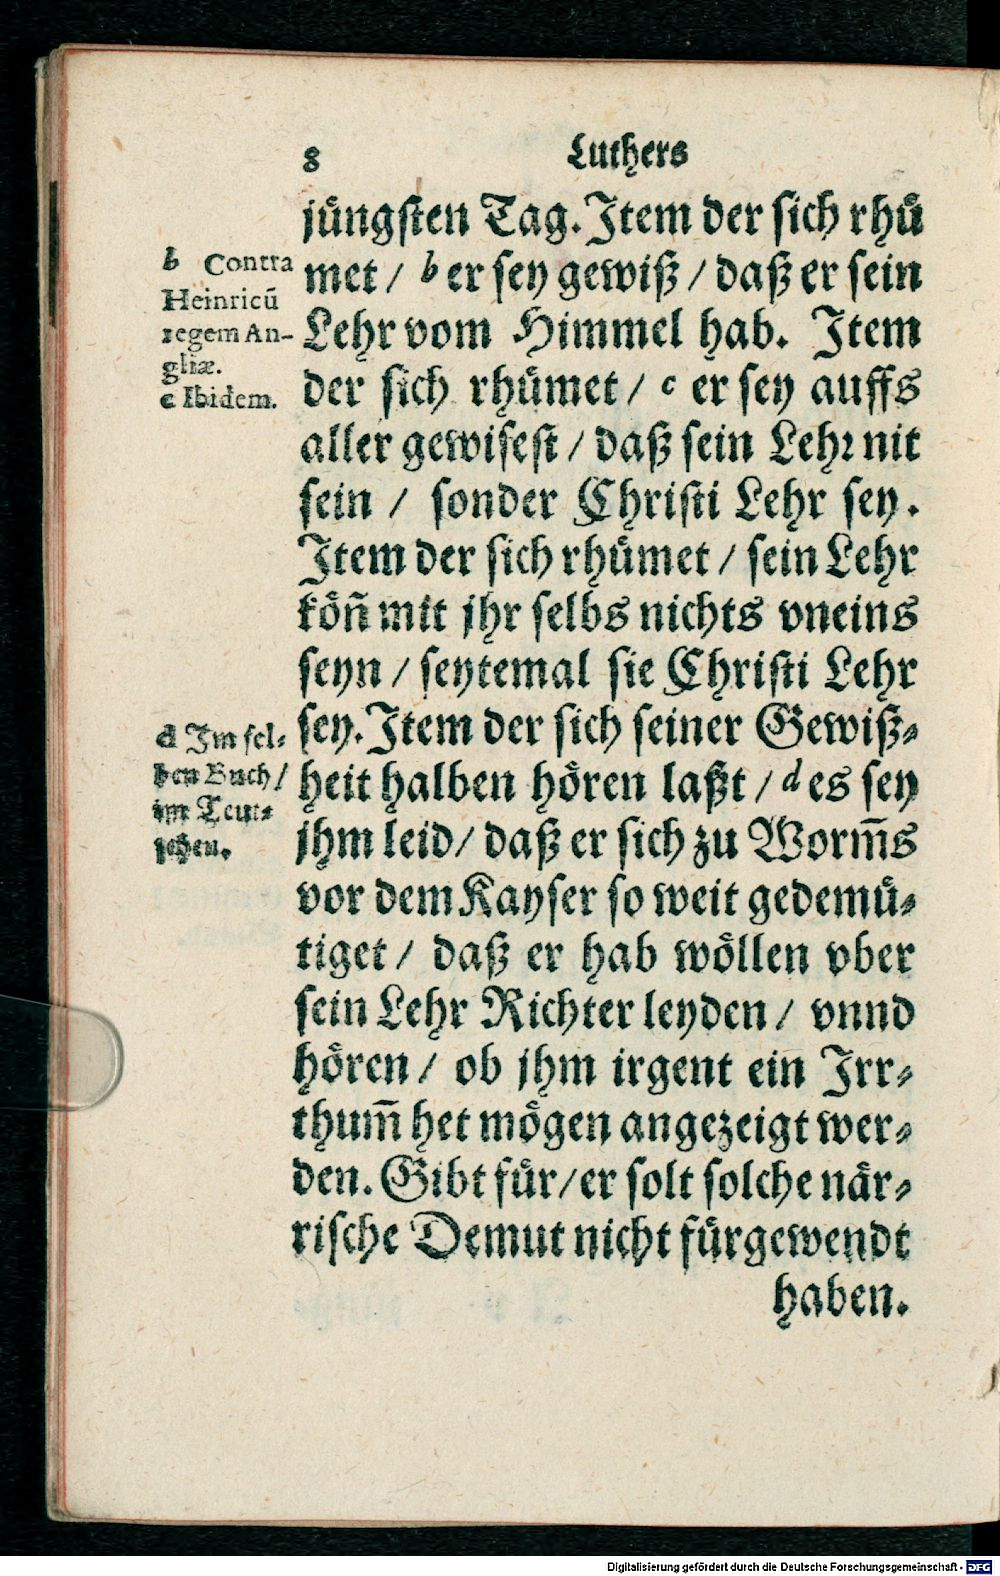 8 Luthers
jüngsten Tag. Item der sich rhü
met / b er sey gewiß / daß er sein
Lehr vom Himmel hab. Item
der sich rhümet / c er sey auffs
aller gewisest / daß sein Lehr nit
sein / sonder Christi Lehr sey.
Item der sich rhümet / sein Lehr
köñ mit jhr selbs nichts vneins
seyn / seytemal sie Christi Lehr
sey. Item der sich seiner Gewiß-
heit halben hören laßt / d es sey
jhm leid / daß er sich zu Worm̄s
vor dem Kayser so weit gedemü-
tiget / daß er hab wöllen vber
sein Lehr Richter leyden / vnnd
hören / ob jhm irgent ein Irr-
thum̄ het mögen angezeigt wer-
den. Gibt für / er solt solche när-
rische Demut nicht fürgewendt
haben.
b Contra
Heinricū
regem An-
gliæ.
c Ibidem.
d Im sel-
ben Buch /
im Teut-
schen.
Digitalisierung gefördert durch die Deutsche Forschungsgemeinschaft - DFG